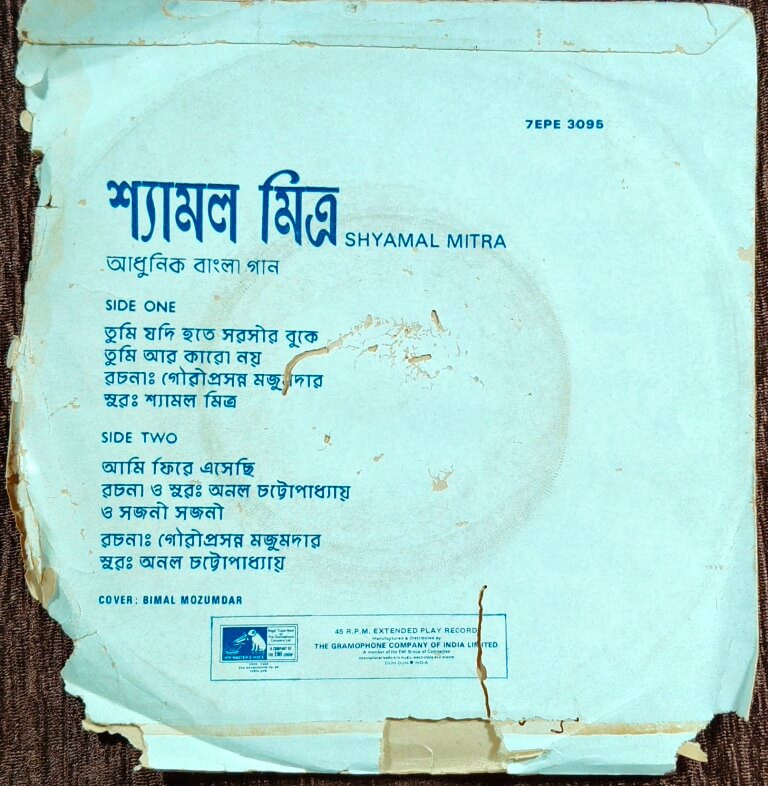 7EPE 3095
শ্যামল মিত্র SHYAMAL MITRA
আধুনিক বাংলা গান
SIDE ONE
তুমি যদি হতে সরসীর বুকে
তুমি আর কারো নয়
রচনাঃ গৌরীপ্রসন্ন মজুমদার
সুরঃ শ্যামল মিত্র
SIDE TWO
আমি ফিরে এসেছি
রচনা ও সুরঃ অনল চট্টোপাধ্যায়
ও সজনী সজনী
রচনাঃ গৌরীপ্রসন্ন মজুমদার
সুরঃ অনল চট্টোপাধ্যায়
COVER: BIMAL MOZUMDAR
45 R.P.M. EXTENDED PLAY RECORD
Manufactured & Distributed by
THE GRAMOPHONE COMPANY OF INDIA LIMITED
A member of the EMI Group of Companies
DUM DUM ● INDIA
HIS MASTER'S VOICE